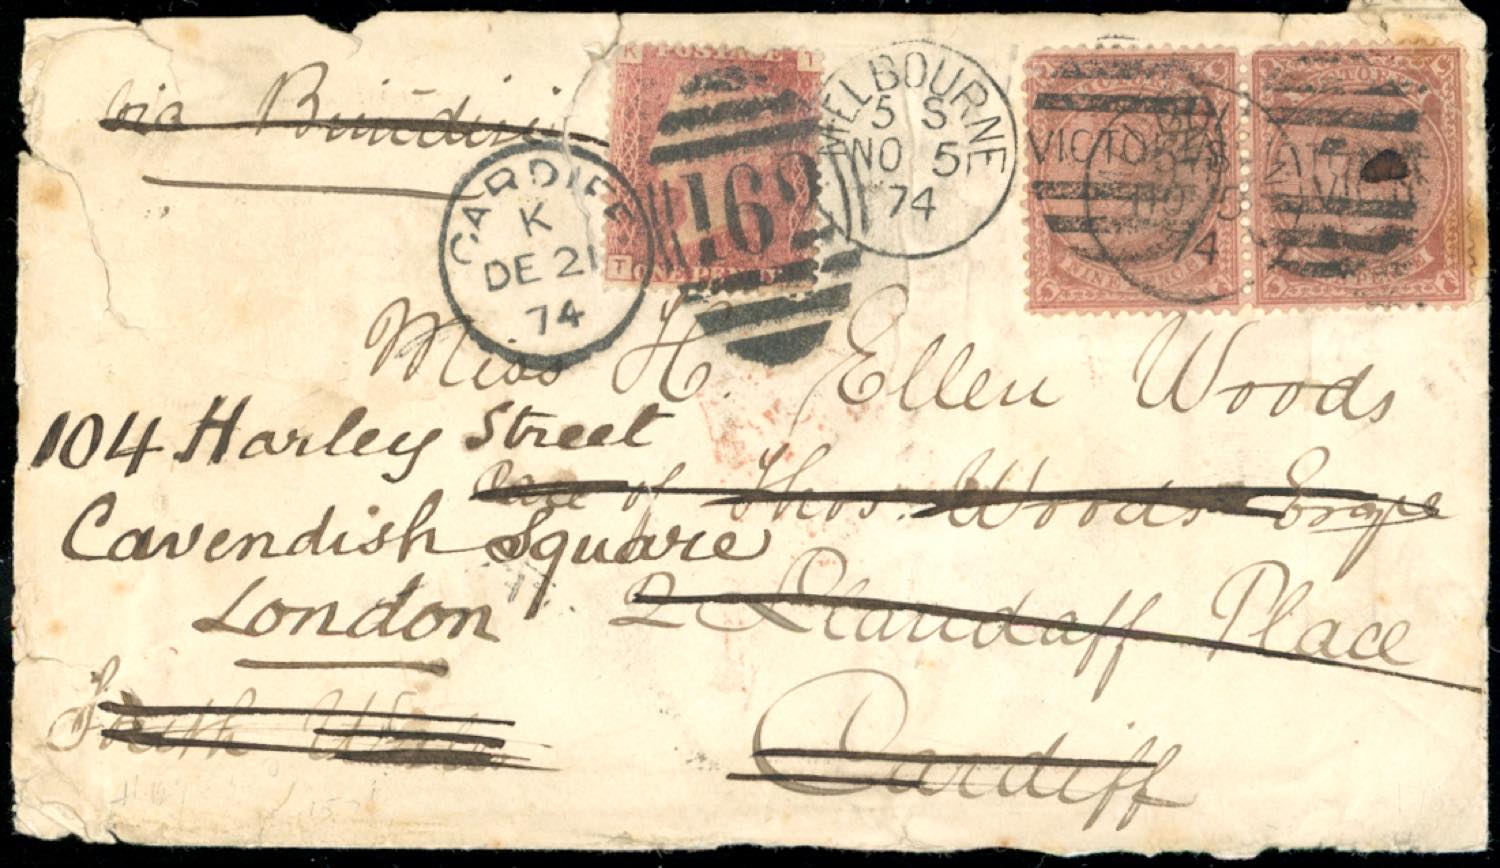 via Brindisi
K POSTAGE T
T ONE PENNY
CARDIFF
K
DE 21
74
162
MELBOURNE
5 S
NO 5
74
VICTORIA
NO 5
74
NINE PENCE
Miss H. Ellen Woods
104 Harley Street
Care of Thos. Woods Esqre
Cavendish Square
2 Llandaff Place
London
South Wales
Cardiff